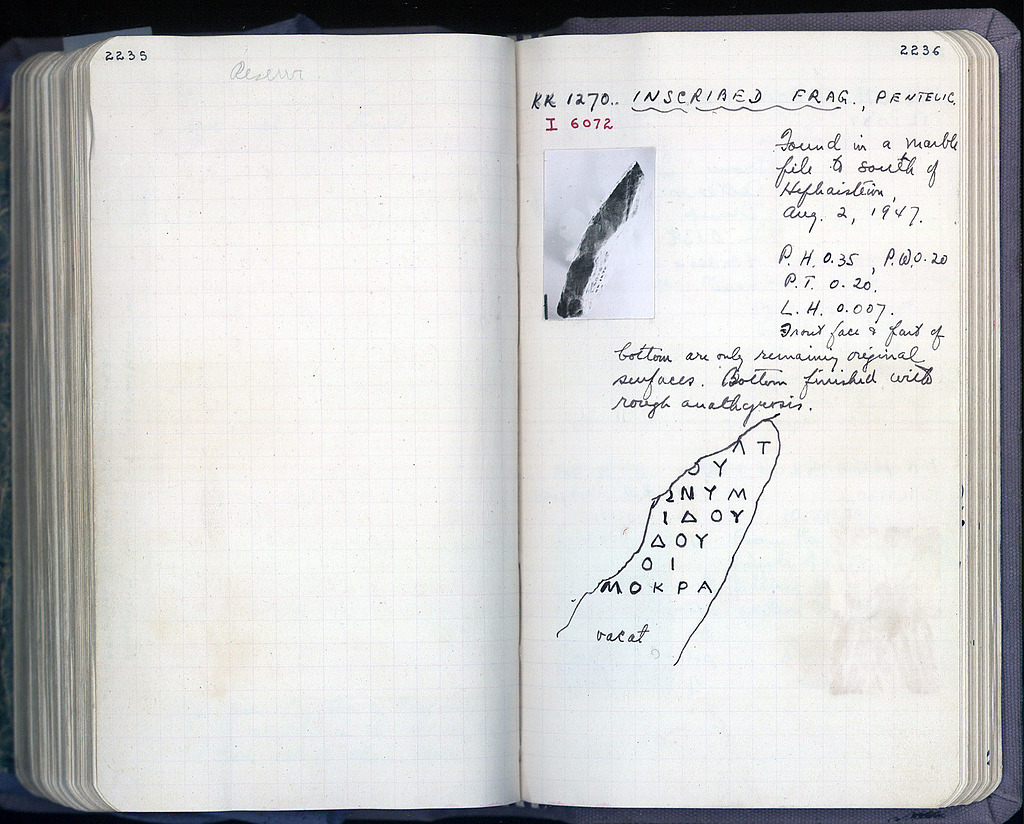 2235
Reserve
2236
KK 1270.. INSCRIBED FRAG., PENTELIC.
I 6072
Found in a marble
pile to south of
Hephaisteion,
Aug. 2, 1947.
P.H. 0.35, P.W. 0.20
P.T. 0.20.
L.H. 0.007.
Front face & part of
bottom are only remaining original
surfaces. Bottom finished with
rough anathyrosis.
Λ Τ
Ο Υ
Ω Ν Υ Μ
Ι Δ Ο Υ
Δ Ο Υ
Ο Ι
Μ Ο Κ Ρ Α
vacat